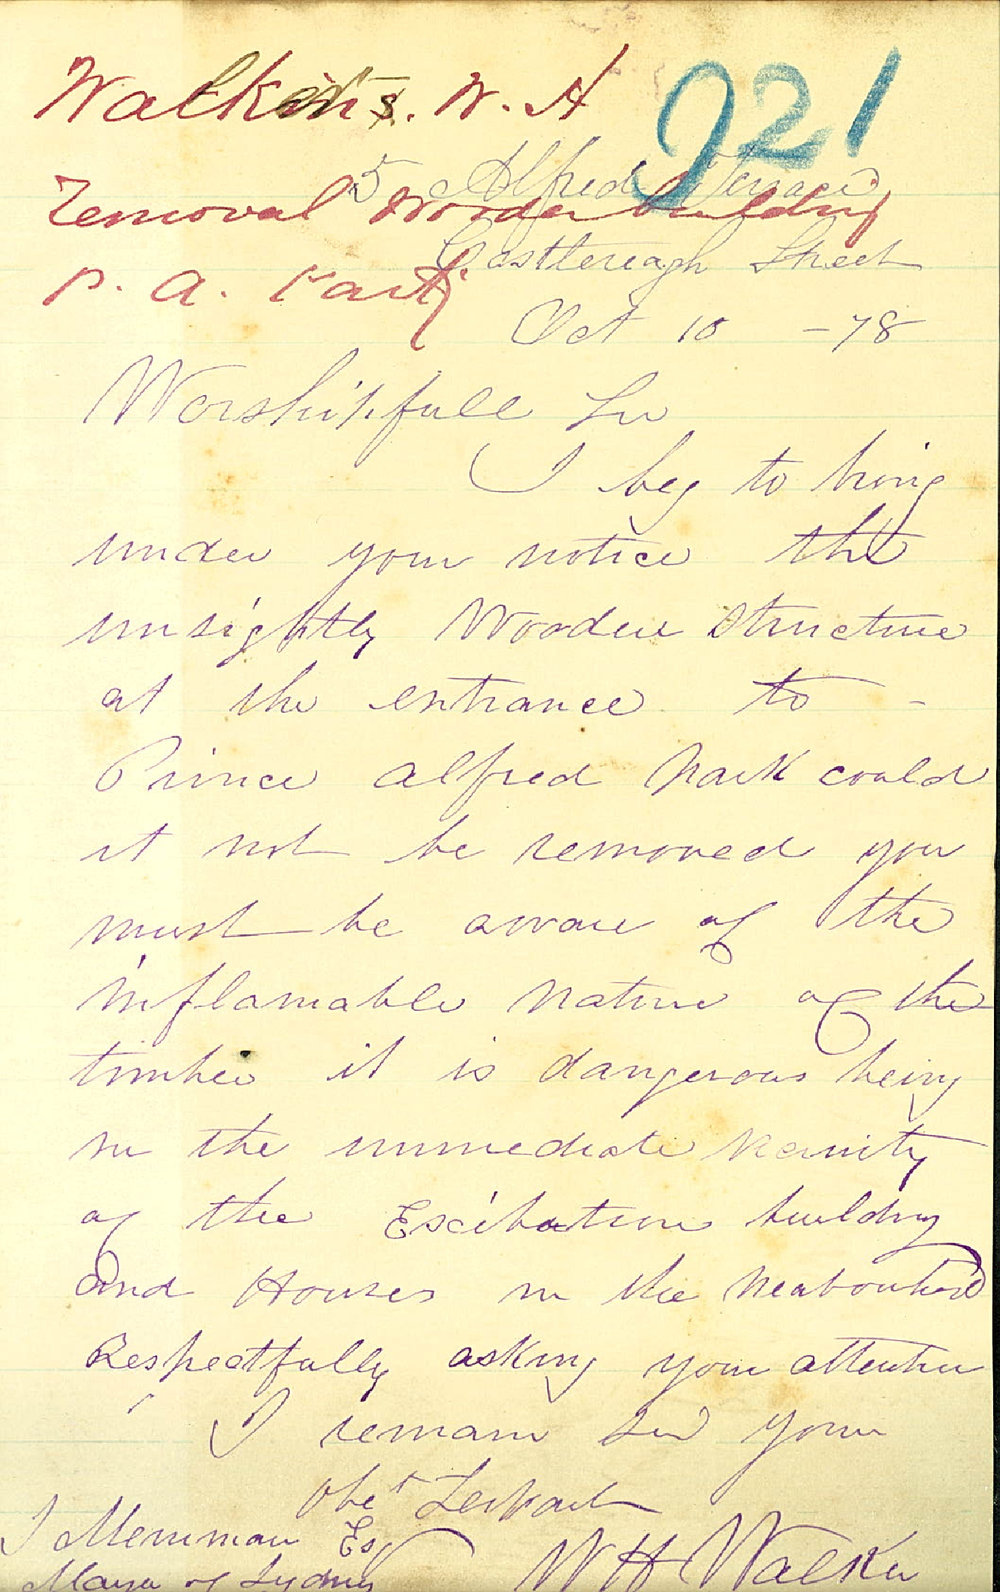 921
Walkers. W. H
5 Alfred Terrace
removal Wooden building
Castlereagh Street
P. A. Park
Oct 10 - 78
Worshipfull Sir
I beg to bring
under your notice the
unsightly Wooden Structure
at the entrance to -
Prince Alfred Park could
it not be removed you
must be aware of the
inflamable nature of the
timber it is dangerous being
in the immediate vicinity
of the Excibation building
and Houses in the neabourhood
Respectfully asking your attention
I remain Sir your
obet Servant
J Merriman Esq
WH Walker
Mayor of Sydney